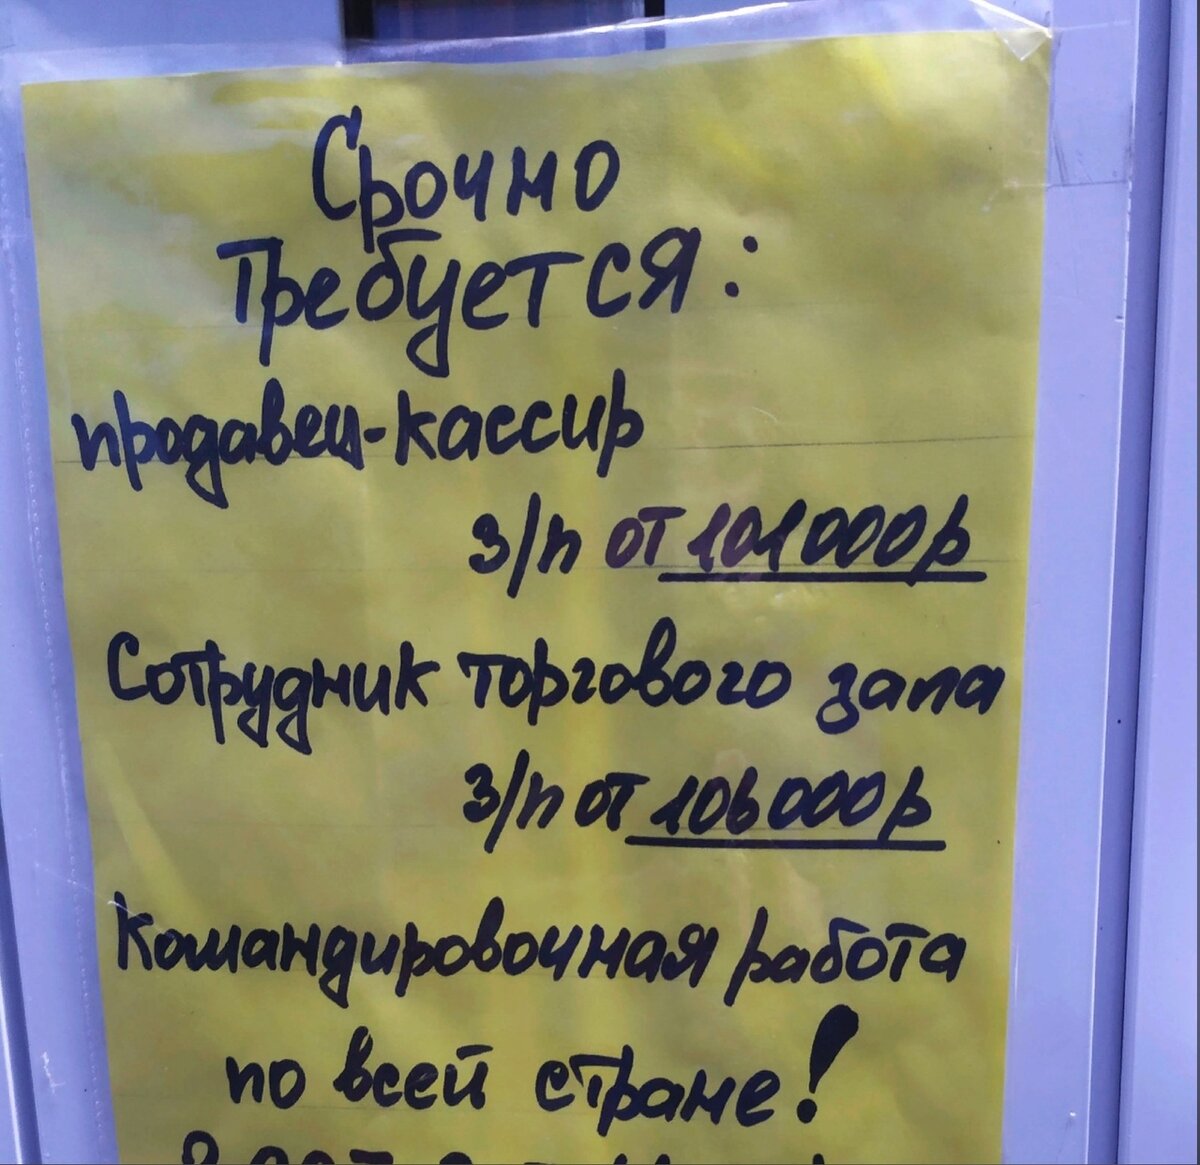 Срочно
Требуется:
продавец-кассир
з/п от 101000р
Сотрудник торгового зала
з/п от 106000р
Командировочная работа
по всей стране!